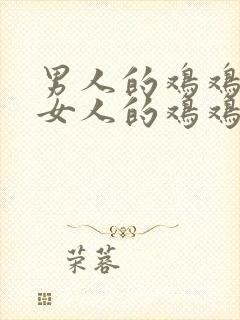 男人的鸡鸡
女人的鸡鸡
荣蓉